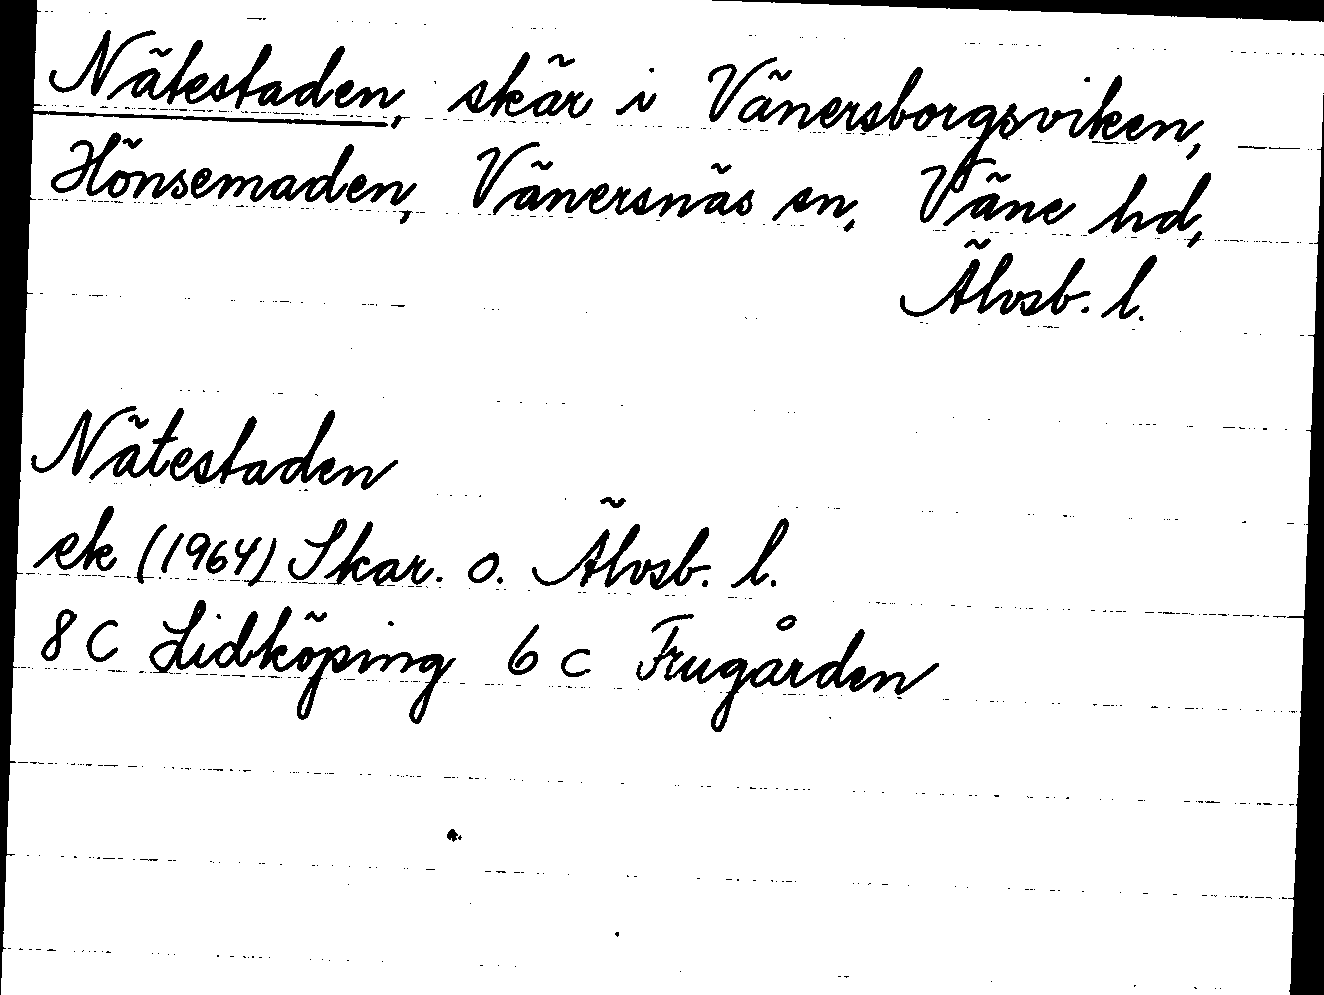 Nätestaden, skär i Vänersborgsviken,
Hönsemaden, Vänersnäs sn, Väne hd,
Älvsb. l.
Nätestaden
ek (1964) Skar. o. Älvsb. l.
8 C Lidköping 6 c Frugården